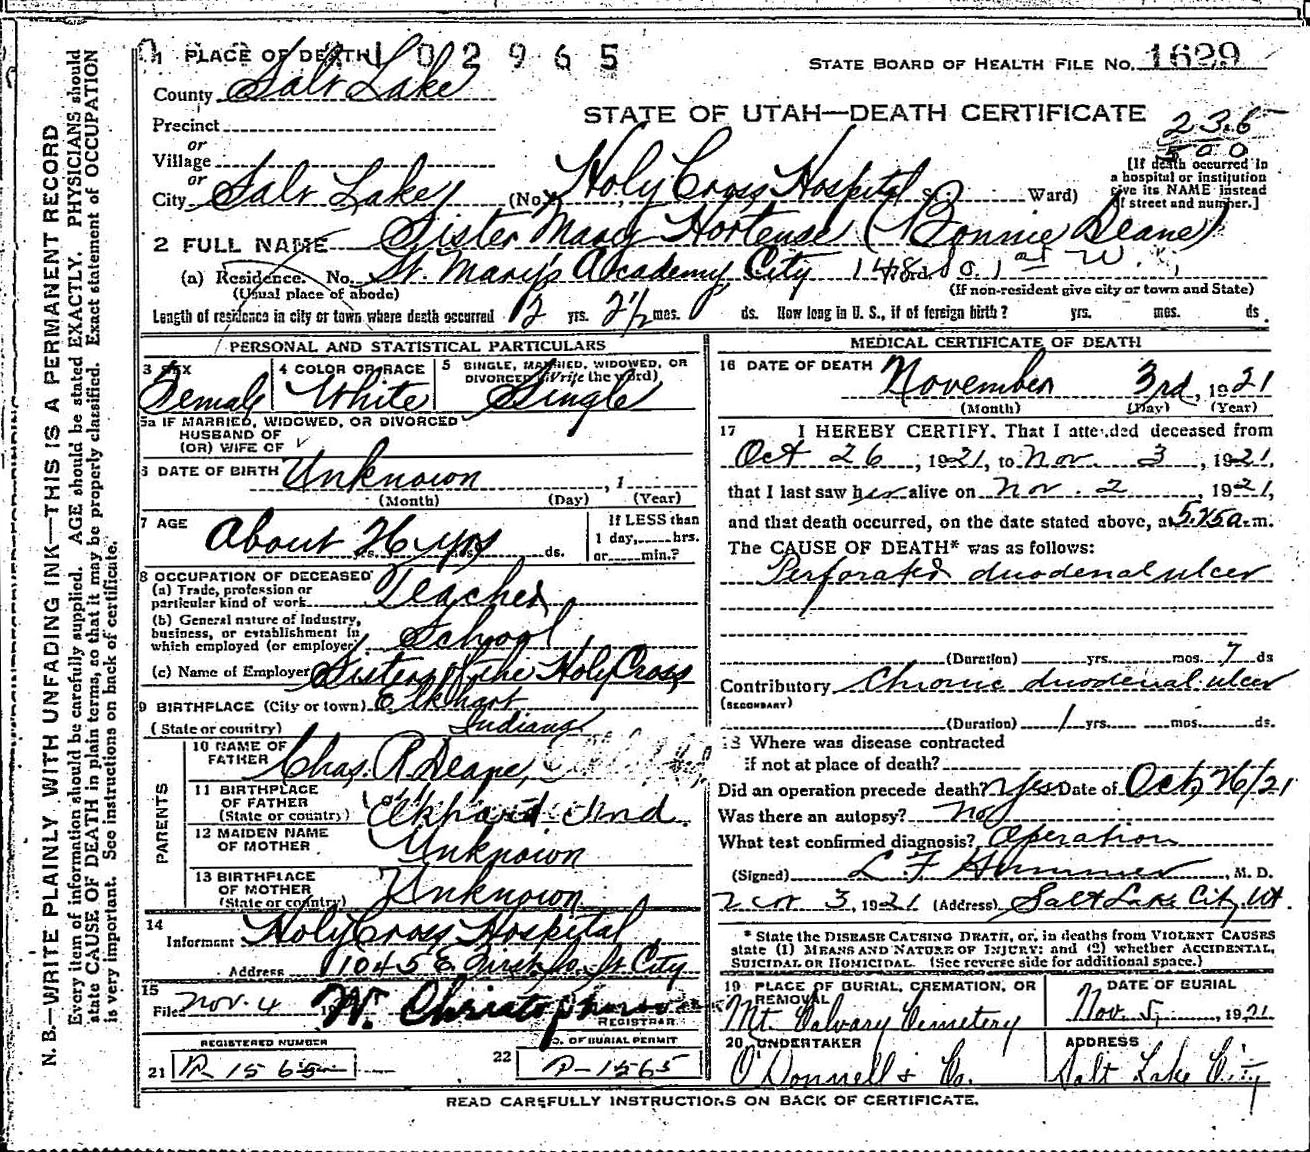 1 PLACE OF DEATH 0 2 9 6 5
STATE BOARD OF HEALTH FILE NO. 1629
County Salt Lake
STATE OF UTAH—DEATH CERTIFICATE
Precinct
235
500
or
Village
or
City Salt Lake (No. Holy Cross Hospital St. Ward)
[If death occurred in
a hospital or institution
give its NAME instead
of street and number.]
2 FULL NAME Sister Mary Hortense (Bonnie Deane)
(a) Residence. No. St. Mary's Academy City 148 So. 1st W.
(Usual place of abode)
(If non-resident give city or town and State)
Length of residence in city or town where death occurred 2 yrs. 2½ mos. ds. How long in U. S., if of foreign birth? yrs. mos. ds.
PERSONAL AND STATISTICAL PARTICULARS
3 SEX
Female
4 COLOR OR RACE
White
5 SINGLE, MARRIED, WIDOWED, OR
DIVORCED (Write the word)
Single
5a IF MARRIED, WIDOWED, OR DIVORCED
HUSBAND OF
(OR) WIFE OF
6 DATE OF BIRTH Unknown , 1
(Month) (Day) (Year)
7 AGE
About 26 yrs mos. ds.
If LESS than
1 day, hrs.
or min.?
8 OCCUPATION OF DECEASED
(a) Trade, profession or
particular kind of work Teacher
(b) General nature of industry,
business, or establishment in
which employed (or employer) School
(c) Name of Employer Sisters of the Holy Cross
9 BIRTHPLACE (City or town) Elkhart
(State or country) Indiana
PARENTS
10 NAME OF
FATHER Chas. R Deane,
11 BIRTHPLACE
OF FATHER
(State or country) Elkhart Ind.
12 MAIDEN NAME
OF MOTHER Unknown
13 BIRTHPLACE
OF MOTHER
(State or country) Unknown
14
Informant Holy Cross Hospital
Address 1045 E. First So. St City
15
Filed Nov. 4 19
W. Christopherson
REGISTRAR
REGISTERED NUMBER
21 R 1565
NO. OF BURIAL PERMIT
22 P-1565
MEDICAL CERTIFICATE OF DEATH
16 DATE OF DEATH November 3rd, 1921
(Month) (Day) (Year)
17 I HEREBY CERTIFY, That I attended deceased from
Oct 26, 1921, to Nov. 3, 1921,
that I last saw her alive on Nov. 2, 1921,
and that death occurred, on the date stated above, at 5.25 a.m.
The CAUSE OF DEATH* was as follows:
Perforated duodenal ulcer
(Duration) yrs. mos. 7 ds
Contributory Chronic duodenal ulcer
(SECONDARY)
(Duration) 1 yrs. mos. ds.
18 Where was disease contracted
if not at place of death?
Did an operation precede death? Yes Date of Oct, 26/21
Was there an autopsy? No
What test confirmed diagnosis? Operation
(Signed) L. F. Hummer, M. D.
Nov 3, 1921 (Address) Salt Lake City, Ut.
* State the DISEASE CAUSING DEATH, or, in deaths from VIOLENT CAUSES
state (1) MEANS AND NATURE OF INJURY; and (2) whether ACCIDENTAL,
SUICIDAL OR HOMICIDAL. (See reverse side for additional space.)
19 PLACE OF BURIAL, CREMATION, OR
REMOVAL
Mt. Calvary Cemetery
DATE OF BURIAL
Nov. 5, 1921
20 UNDERTAKER
O'Donnell & Co.
ADDRESS
Salt Lake City
READ CAREFULLY INSTRUCTIONS ON BACK OF CERTIFICATE.
N. B.—WRITE PLAINLY WITH UNFADING INK—THIS IS A PERMANENT RECORD
Every item of information should be carefully supplied. AGE should be stated EXACTLY. PHYSICIANS should
state CAUSE OF DEATH in plain terms, so that it may be properly classified. Exact statement of OCCUPATION
is very important. See instructions on back of certificate.